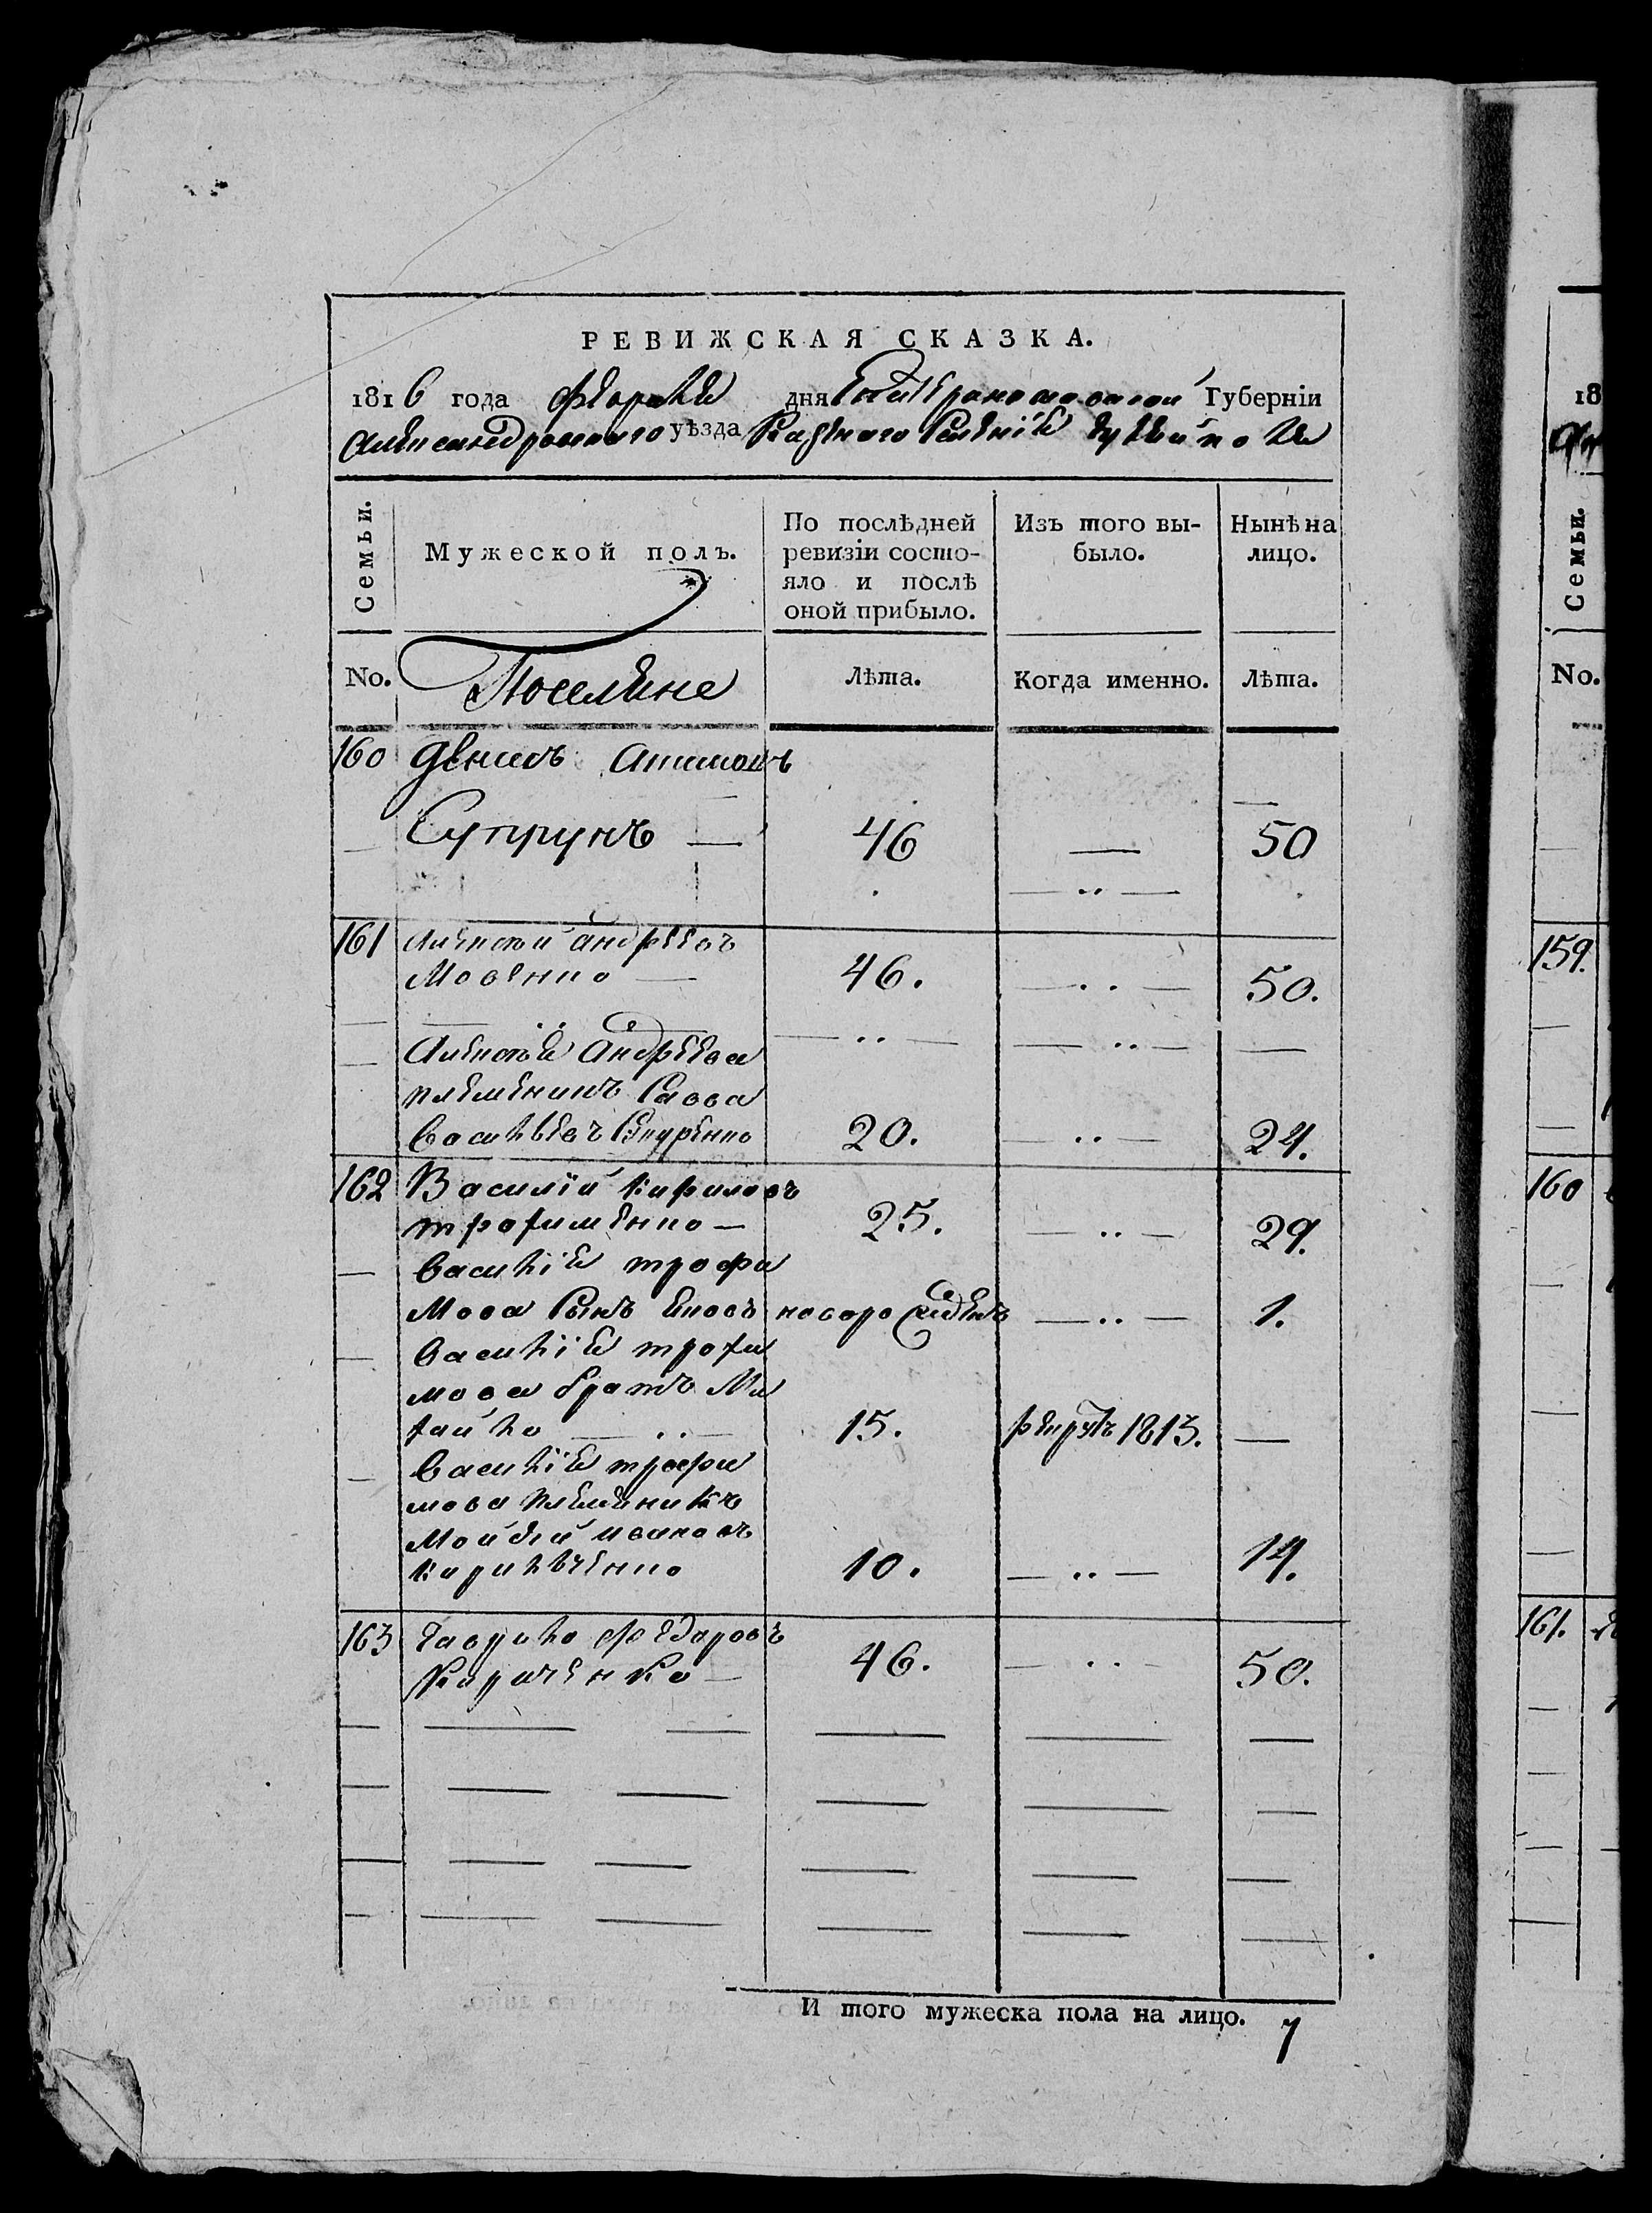 РЕВИЖСКАЯ СКАЗКА.
1816 года февраля дня Екатеринославской Губерніи
Александровского уѣзда Казенного Селенія
Семьи.
Мужеской полъ.
По послѣдней ревизіи состо-
яло и послѣ
оной прибыло.
Изъ того вы-
было.
Нынѣ на
лицо.
No.
Поселяне
Лѣта.
Когда именно.
Лѣта.
160 Денисъ
Супрунъ — 46 — 50
161 Алексѣй андреевъ
Мовенко — 46. — .. — 50.
Алексѣя Андреева
племеникъ Савва
Васильевъ 20. — .. — 24.
162 Василій Кириловъ
трофименко — 25. — .. — 29.
Василія трофи
мова Сынъ новорожденъ — .. — 1.
Василія трофи
мова братъ Ми
хайло — .. — 15. рекрутъ 1813. —
Василія трофи
мова племеникъ
Мойсій ивановъ
Кириченко 10. — .. — 14.
163 Гаврило Федоровъ
Кириченко — 46. — .. — 50.
И того мужеска пола на лицо. 7
18
Семьи.
No.
159.
160
161.